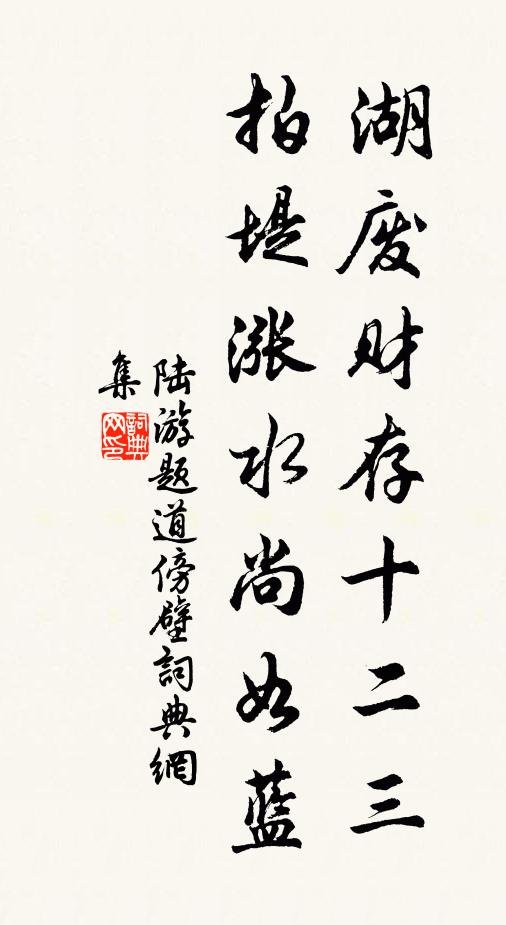 湖废财存十二三
拍堤涨水尚如蓝
陆游题道傍壁詞典網
集
詞典
网印